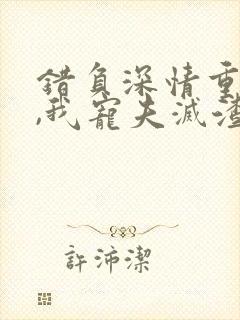 錯負深情重
,我寵夫滅渣
許沛潔